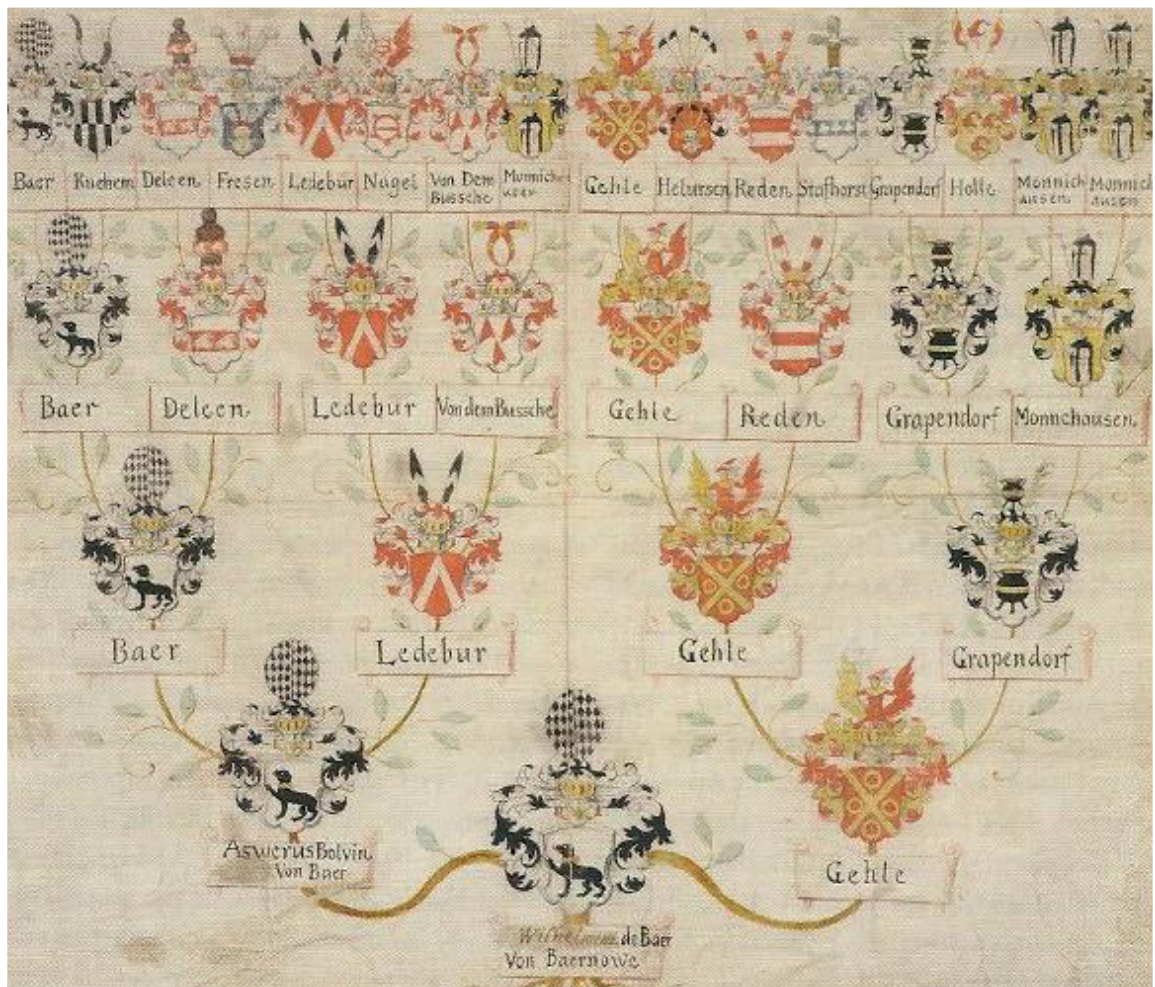 Baer Ruehem Deleen Fresen Ledebur Nagel Von Dem Bussche Gehle Helversen Reden Stafhorst Grapendorf Holle Monnich ausen Monnich ausen
Baer Deleen Ledebur Von dem Bussche Gehle Reden Grapendorf Monnchausen
Baer Ledebur Gehle Grapendorf
Aswerus Bolvin
Von Baer
Gehle
Wilhelmus de Baer
Von Baernowe